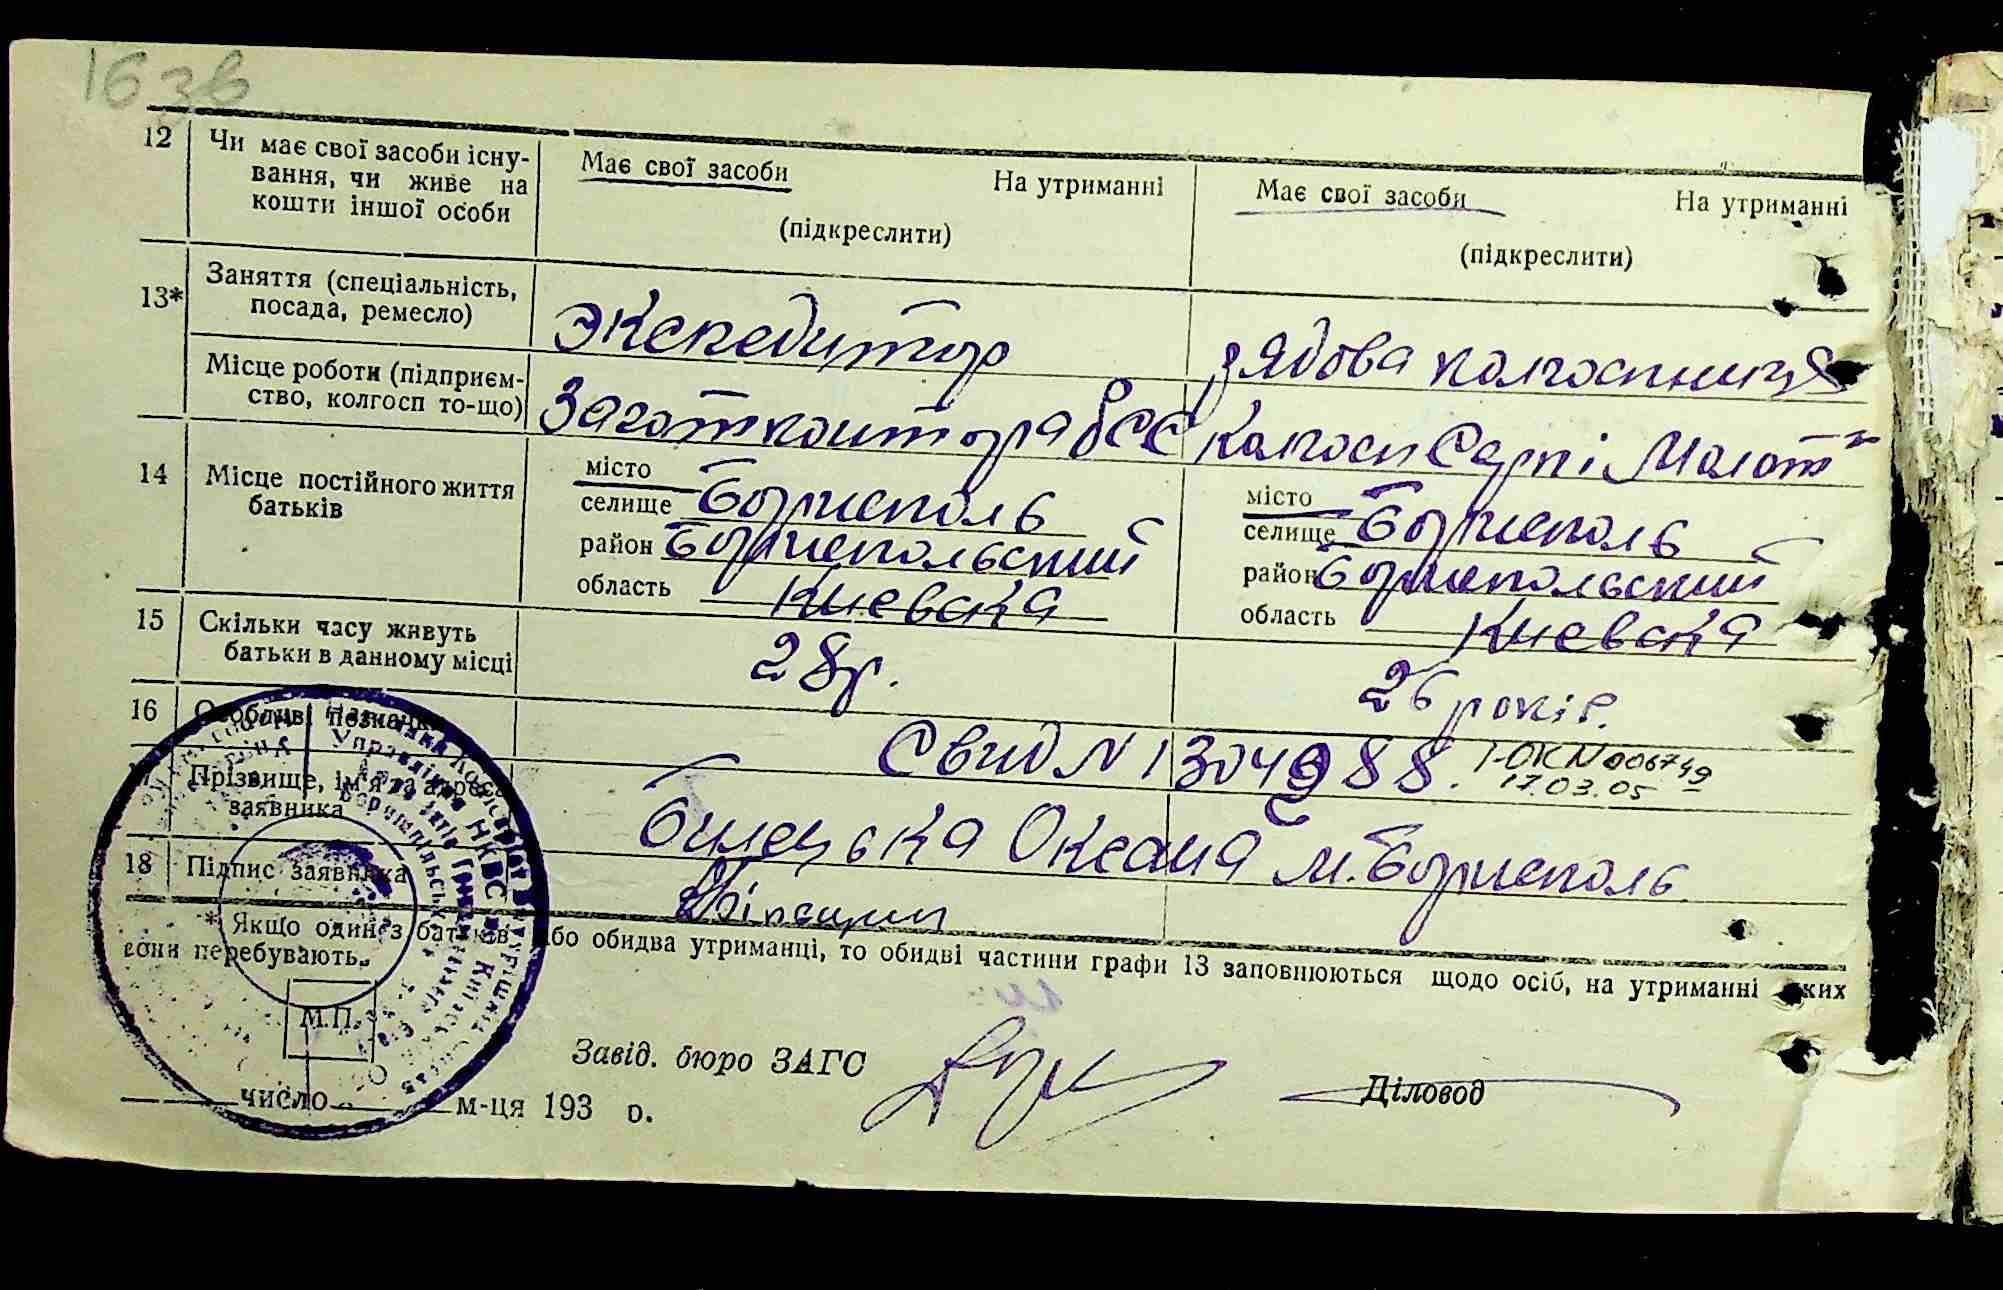 16 зв
12 Чи має свої засоби існу-
вання, чи живе на
кошти іншої особи
Має свої засоби На утриманні
(підкреслити)
Має свої засоби На утриманні
(підкреслити)
13* Заняття (спеціальність,
посада, ремесло)
экспедитор
рядова колгоспниця
Місце роботи (підприєм-
ство, колгосп то-що)
Заготконтора
колгосп Серп і Молот
14 Місце постійного життя
батьків
місто
селище Борисполь
район Бориспольский
область Киевска
місто
селище Борисполь
район Бориспольский
область Киевска
15 Скільки часу живуть
батьки в данному місці
28 р.
26 років.
16 Особливі позначки
Свид N 1304988. 1-ОК N 006749
17.03.05
17 Прізвище, ім'я та адреса
заявника
Билецька Оксана м. Борисполь
18 Підпис заявника
* Якщо один з батьків або обидва утриманці, то обидві частини графи 13 заповнюються щодо осіб, на утриманні яких
вони перебувають.
М.П.
Завід. бюро ЗАГС
Діловод
число м-ця 193 р.